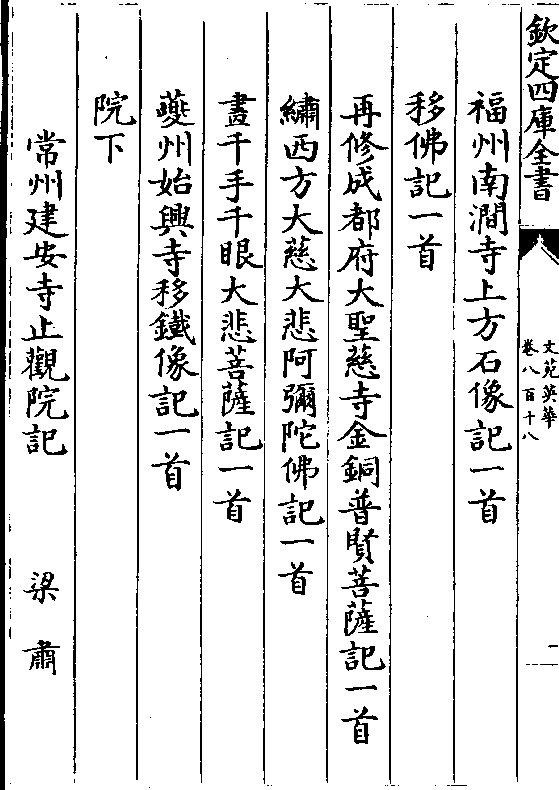 欽定四庫全書
文苑英華
卷八百十八
一
福州南澗寺上方石像記一首
移佛記一首
再修成都府大聖慈寺金銅普賢菩薩記一首
繡西方大慈大悲阿彌陀佛記一首
畫千手千眼大悲菩薩記一首
夔州始興寺移鐵像記一首
院下
常州建安寺止觀院記　梁肅